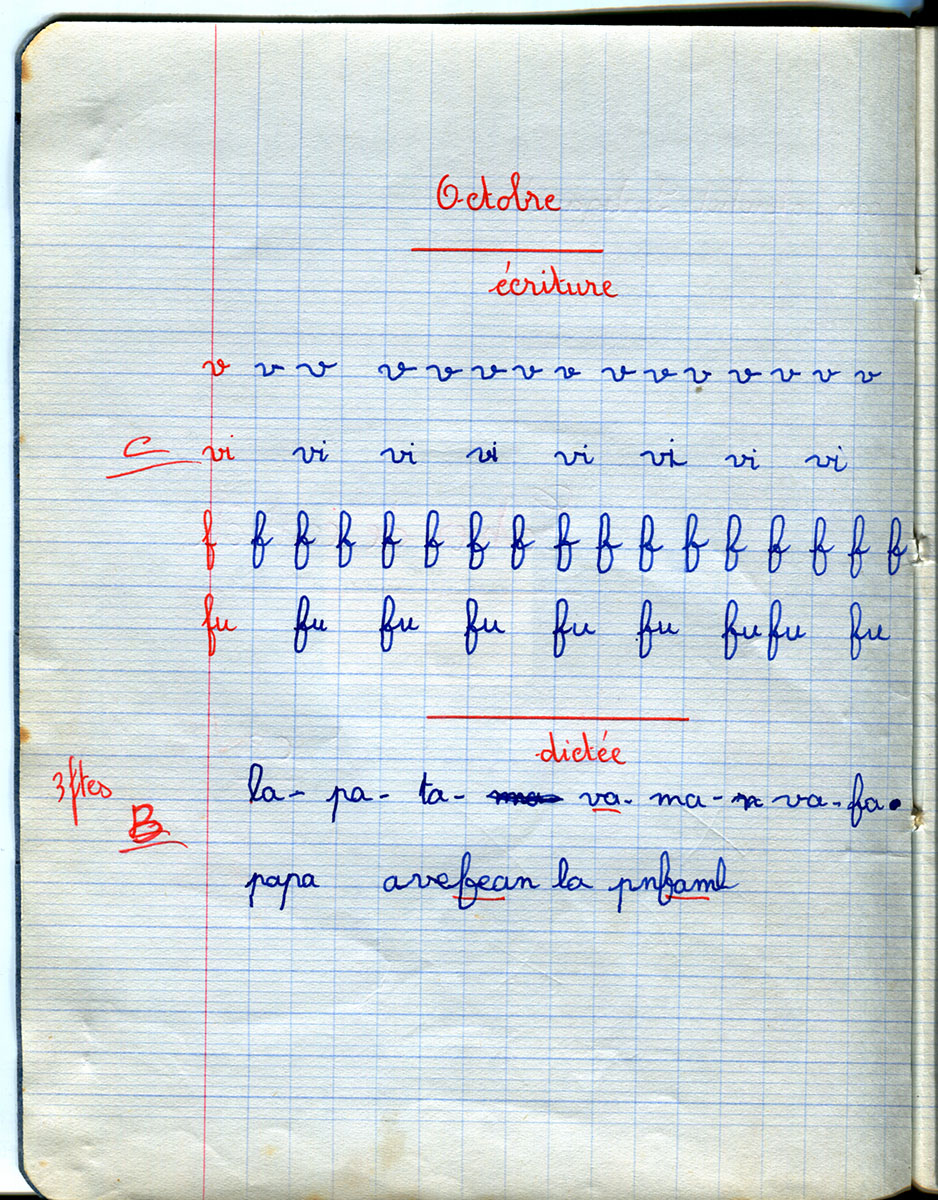 Octobre
écriture
v v v v v v v v v v v v v v v
C vi vi vi vi vi vi vi vi
f f f f f f f f f f f f f f f f f
fu fu fu fu fu fu fu fu fu
dictée
3 ftes la - pa - ta - va - ma - va - fa .
B
papa avefean la pnfaml